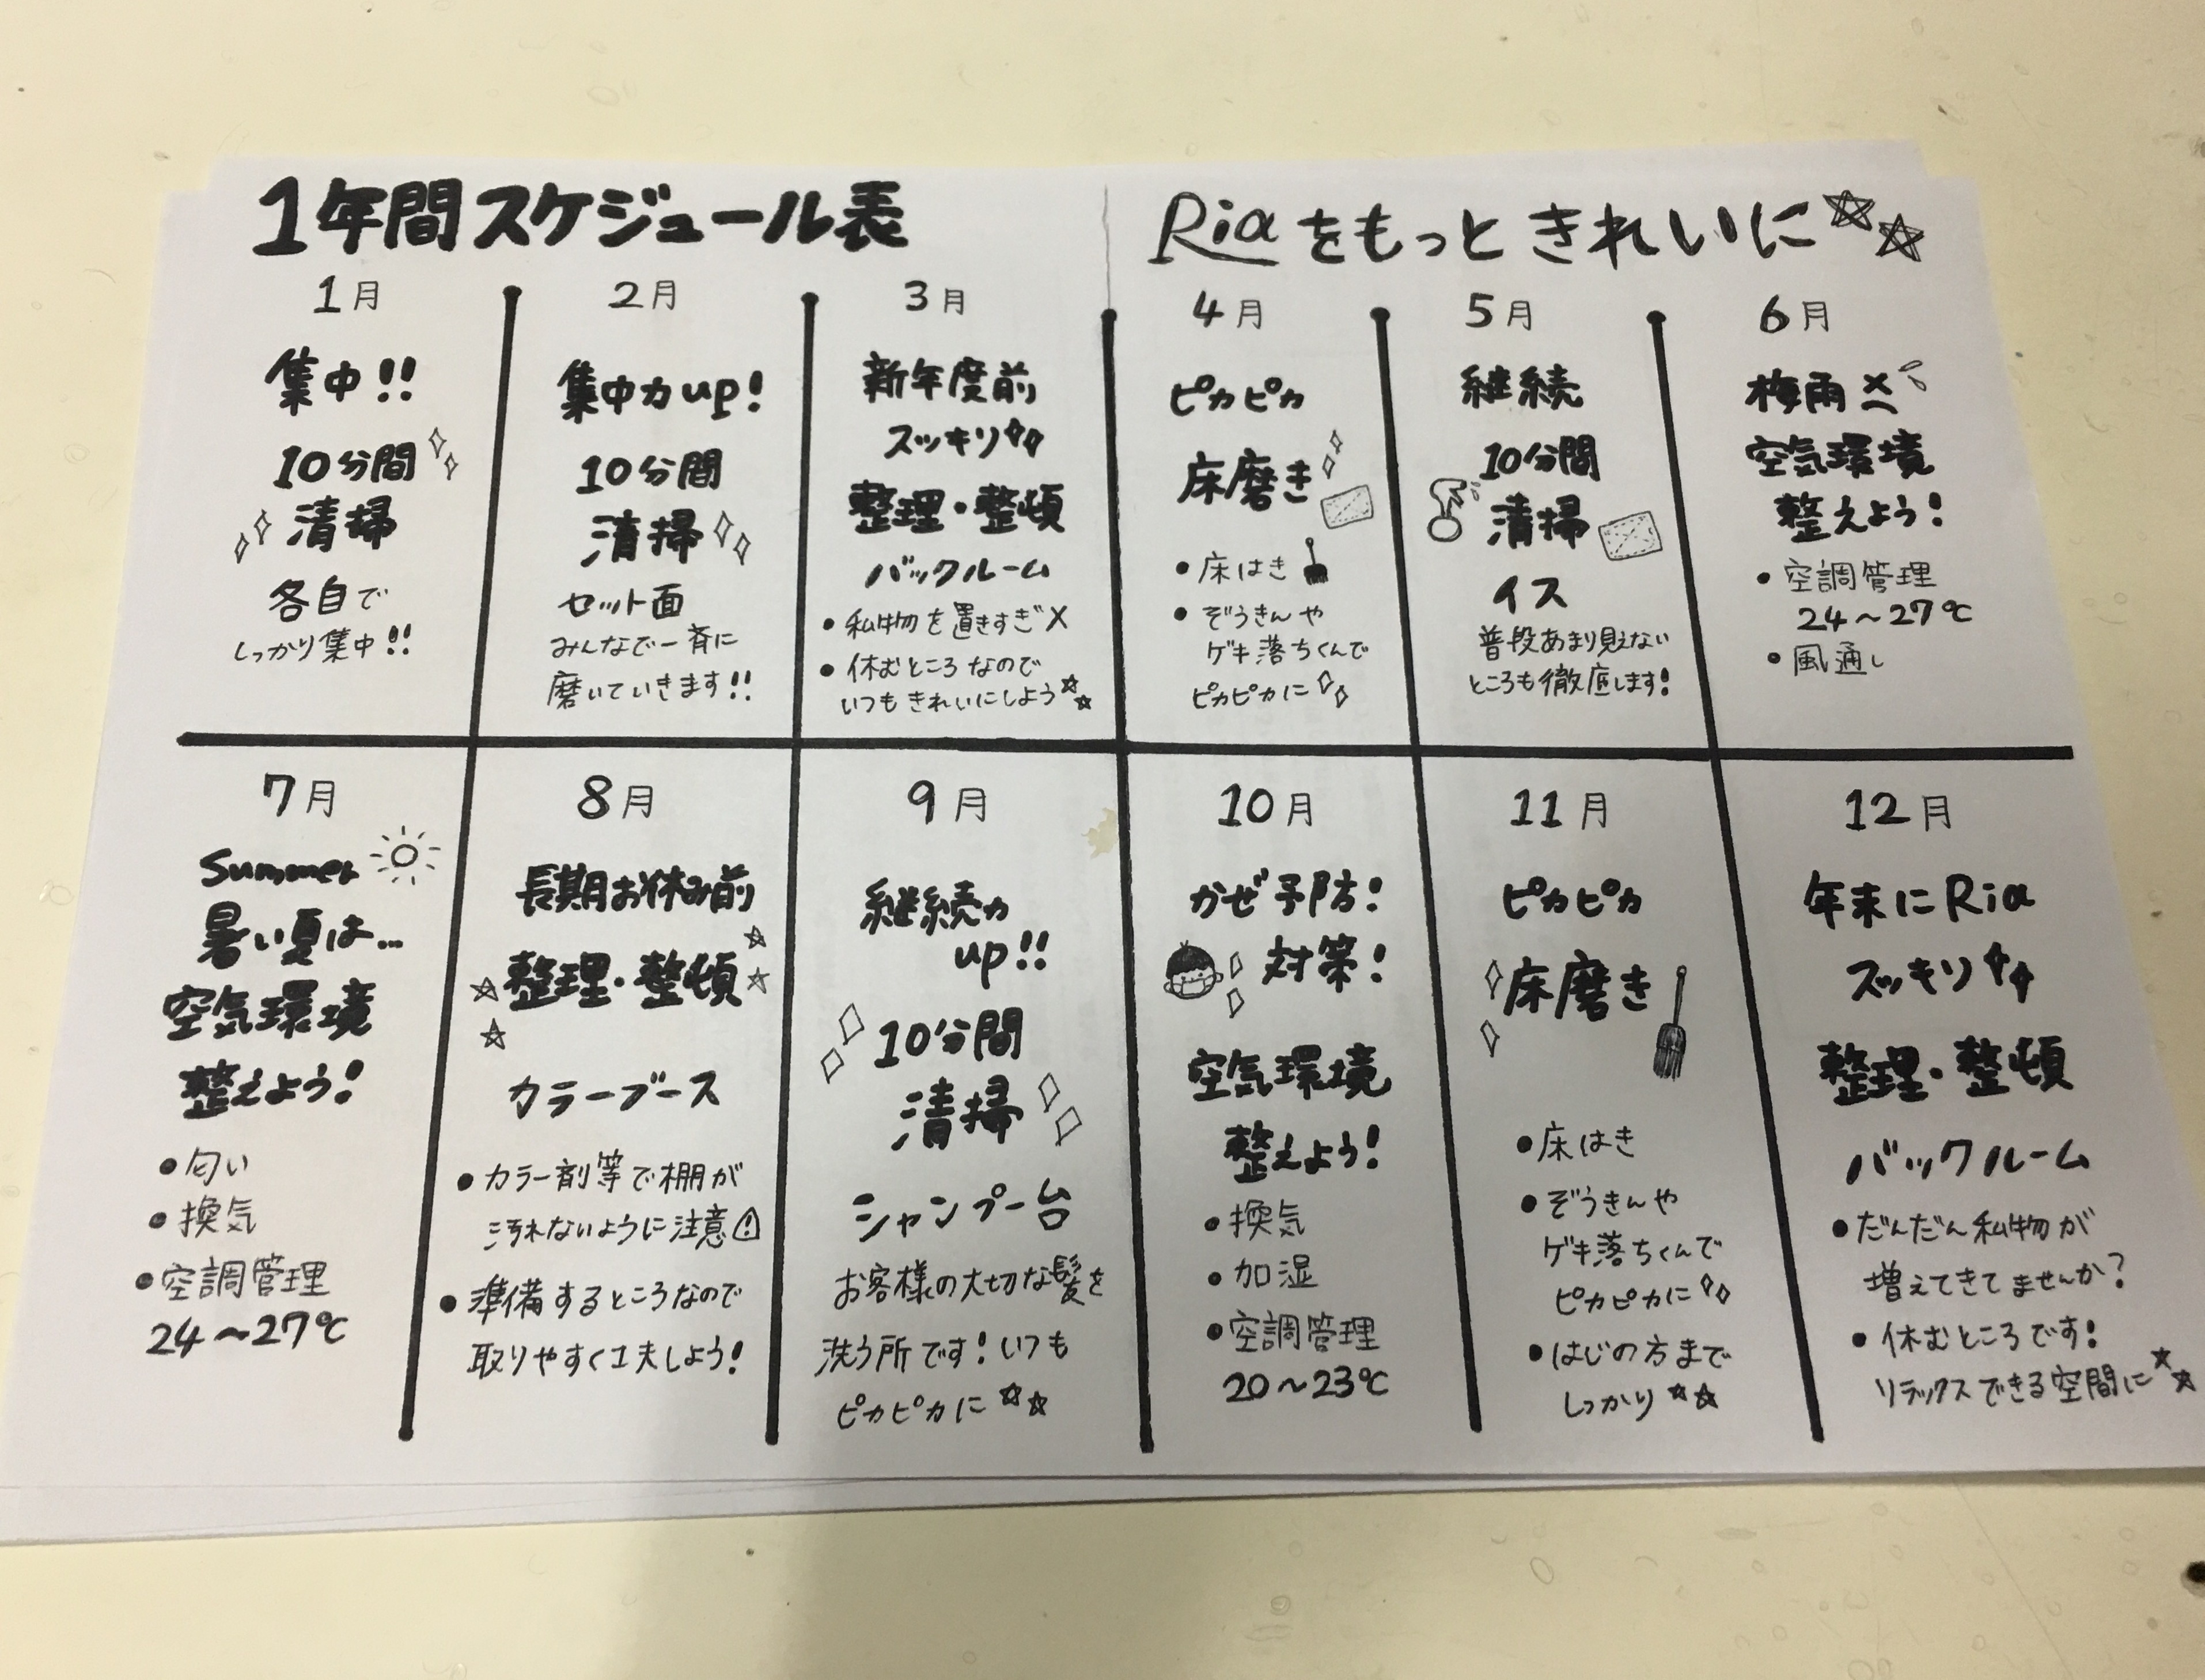 1年間スケジュール表
Riaをもっときれいに
1月
集中!!
10分間
清掃
各自で
しっかり集中!!
2月
集中力up!
10分間
清掃
セット面
みんなで一斉に
磨いていきます!!
3月
新年度前
スッキリ
整理・整頓
バックルーム
・私物を置きすぎ×
・休むところなので
いつもきれいにしよう
4月
ピカピカ
床磨き
・床はき
・ぞうきんや
ゲキ落ちくんで
ピカピカに
5月
継続
10分間
清掃
イス
普段あまり見えない
ところも徹底します!
6月
梅雨
空気環境
整えよう!
・空調管理
24〜27℃
・風通し
7月
summer
暑い夏は…
空気環境
整えよう!
・匂い
・換気
・空調管理
24〜27℃
8月
長期お休み前
整理・整頓
カラーブース
・カラー剤等で棚が
汚れないように注意
・準備するところなので
取りやすく工夫しよう!
9月
継続力
up!!
10分間
清掃
シャンプー台
お客様の大切な髪を
洗う所です!いつも
ピカピカに
10月
かぜ予防!
対策!
空気環境
整えよう!
・換気
・加湿
・空調管理
20〜23℃
11月
ピカピカ
床磨き
・床はき
・ぞうきんや
ゲキ落ちくんで
ピカピカに
・はじの方まで
しっかり
12月
年末にRia
スッキリ
整理・整頓
バックルーム
・だんだん私物が
増えてきてませんか?
・休むところです!
リラックスできる空間に